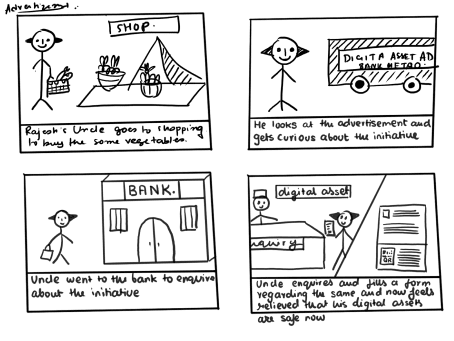 Advertisement.
SHOP.
Rajesh's Uncle goes to shopping
to buy the some vegetables.
DIGITA ASSET AD
BANK METRO.
He looks at the advertisement and
gets curious about the initiative
BANK.
Uncle went to the bank to enquire
about the initiative
digital asset
nquiry
Uncle enquires and fills a form
regarding the same and now feels
relieved that his digital assets
are safe now